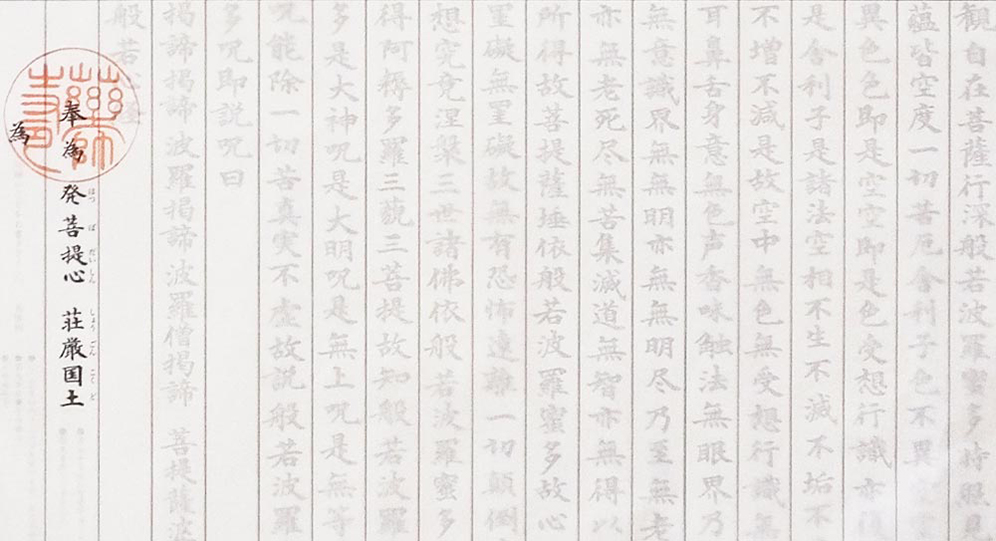 観自在菩薩行深般若波羅蜜多時照見
蘊皆空度一切苦厄舎利子色不異空空
異色色即是空空即是色受想行識亦復
是舎利子是諸法空相不生不滅不垢不
不増不減是故空中無色無受想行識無
耳鼻舌身意無色声香味触法無眼界乃
無意識界無無明亦無無明尽乃至無老
亦無老死尽無苦集滅道無智亦無得以
所得故菩提薩埵依般若波羅蜜多故心
罣礙無罣礙故無有恐怖遠離一切顛倒
想究竟涅槃三世諸佛依般若波羅蜜多
得阿耨多羅三藐三菩提故知般若波羅
多是大神呪是大明呪是無上呪是無等
呪能除一切苦真実不虚故説般若波羅
多呪即説呪曰
掲諦掲諦波羅掲諦 波羅僧掲諦 菩提薩婆
般若心経
はつ ぼ だいしん しょう ごん こく ど
奉為 発菩提心 荘厳国土
為